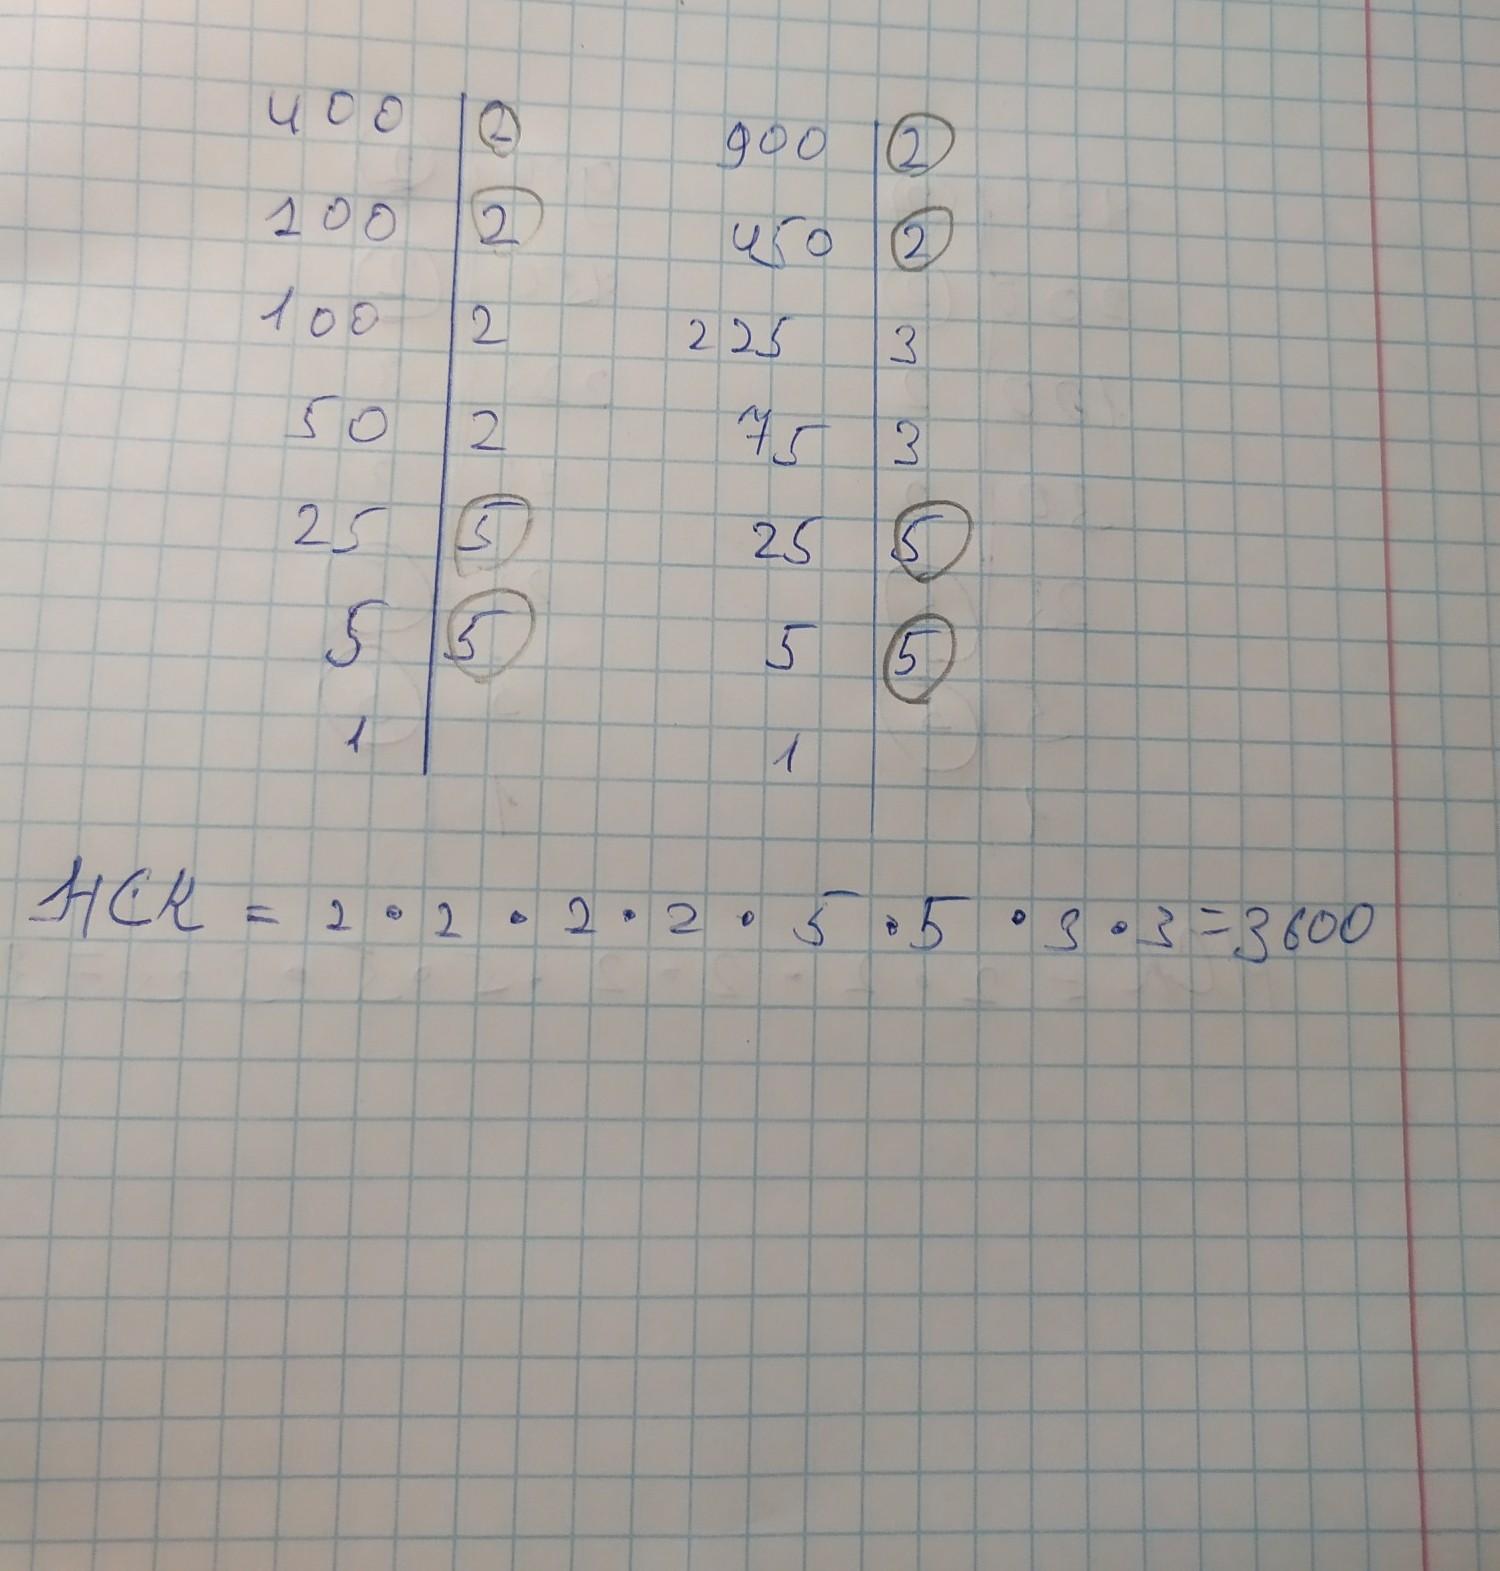 400 | 2 900 | 2
200 | 2 450 | 2
100 | 2 225 | 3
50 | 2 75 | 3
25 | 5 25 | 5
5 | 5 5 | 5
1 | 1 |
НСК = 2 · 2 · 2 · 2 · 5 · 5 · 3 · 3 = 3600